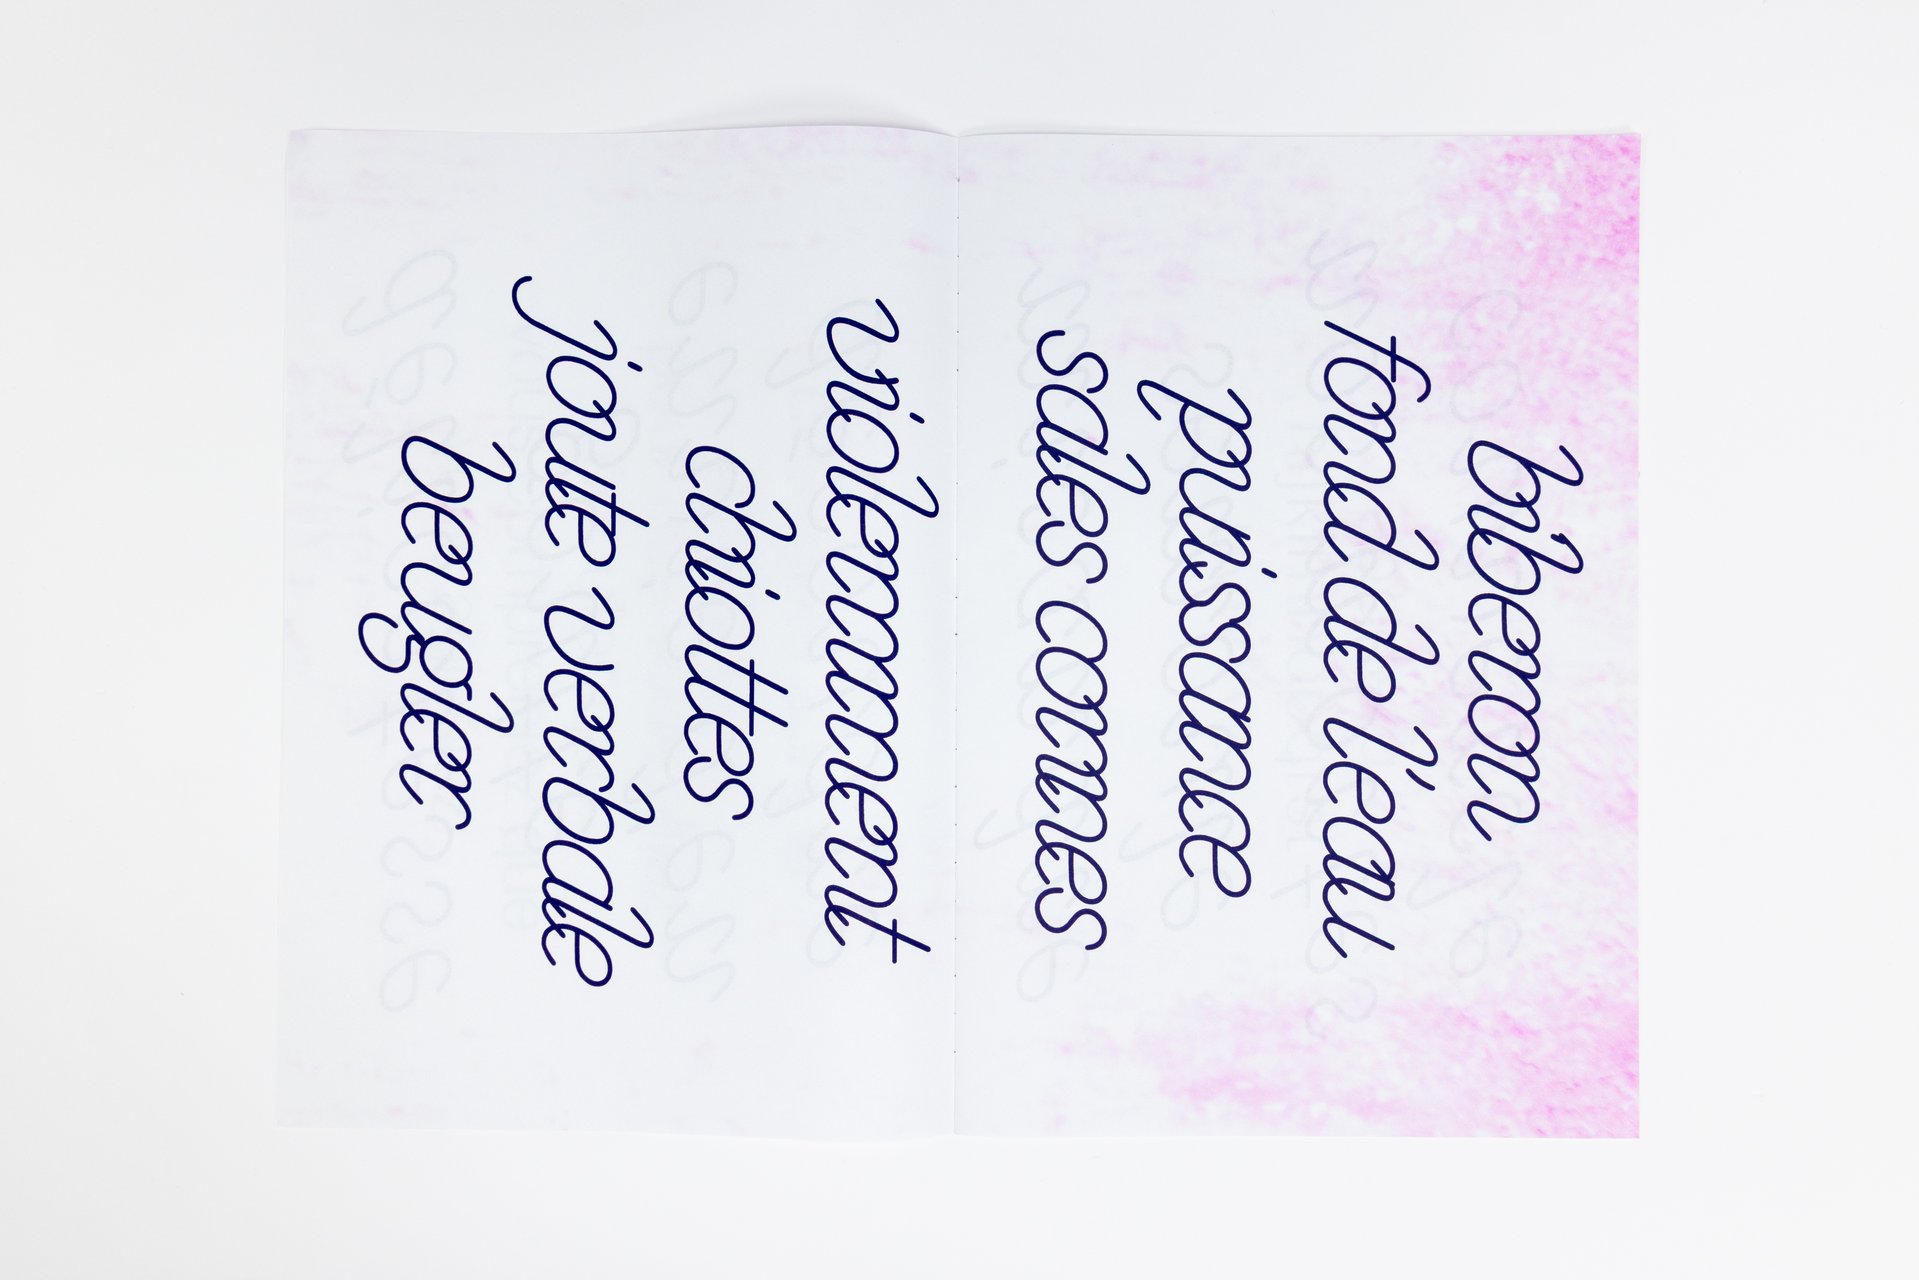 biberon
fond de l'eau
puissance
sales connes
violemment
chiottes
joute verbale
beugler